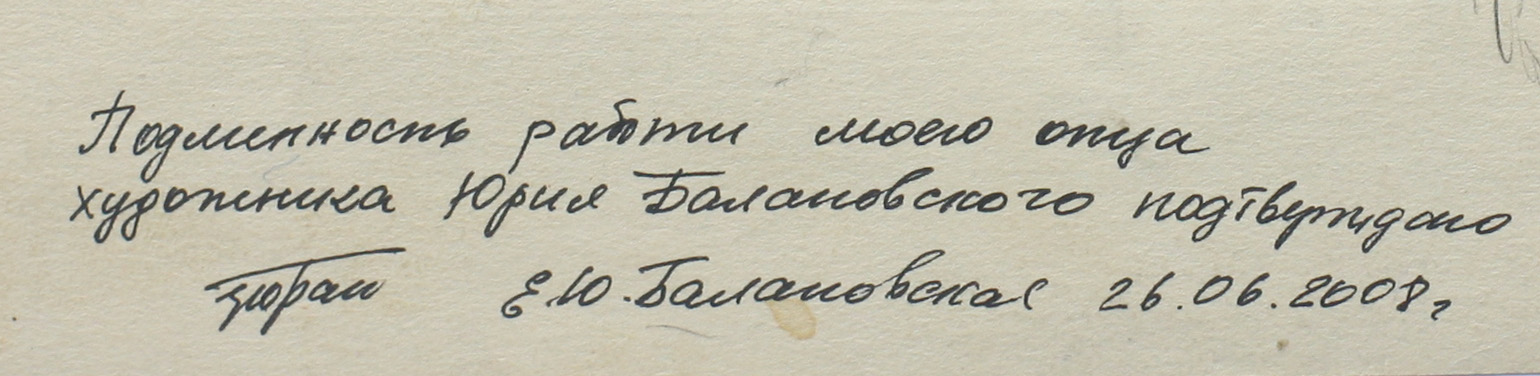 Подлинность работы моего отца
художника Юрия Балановского подтверждаю
Е.Ю. Балановская 26.06.2008г